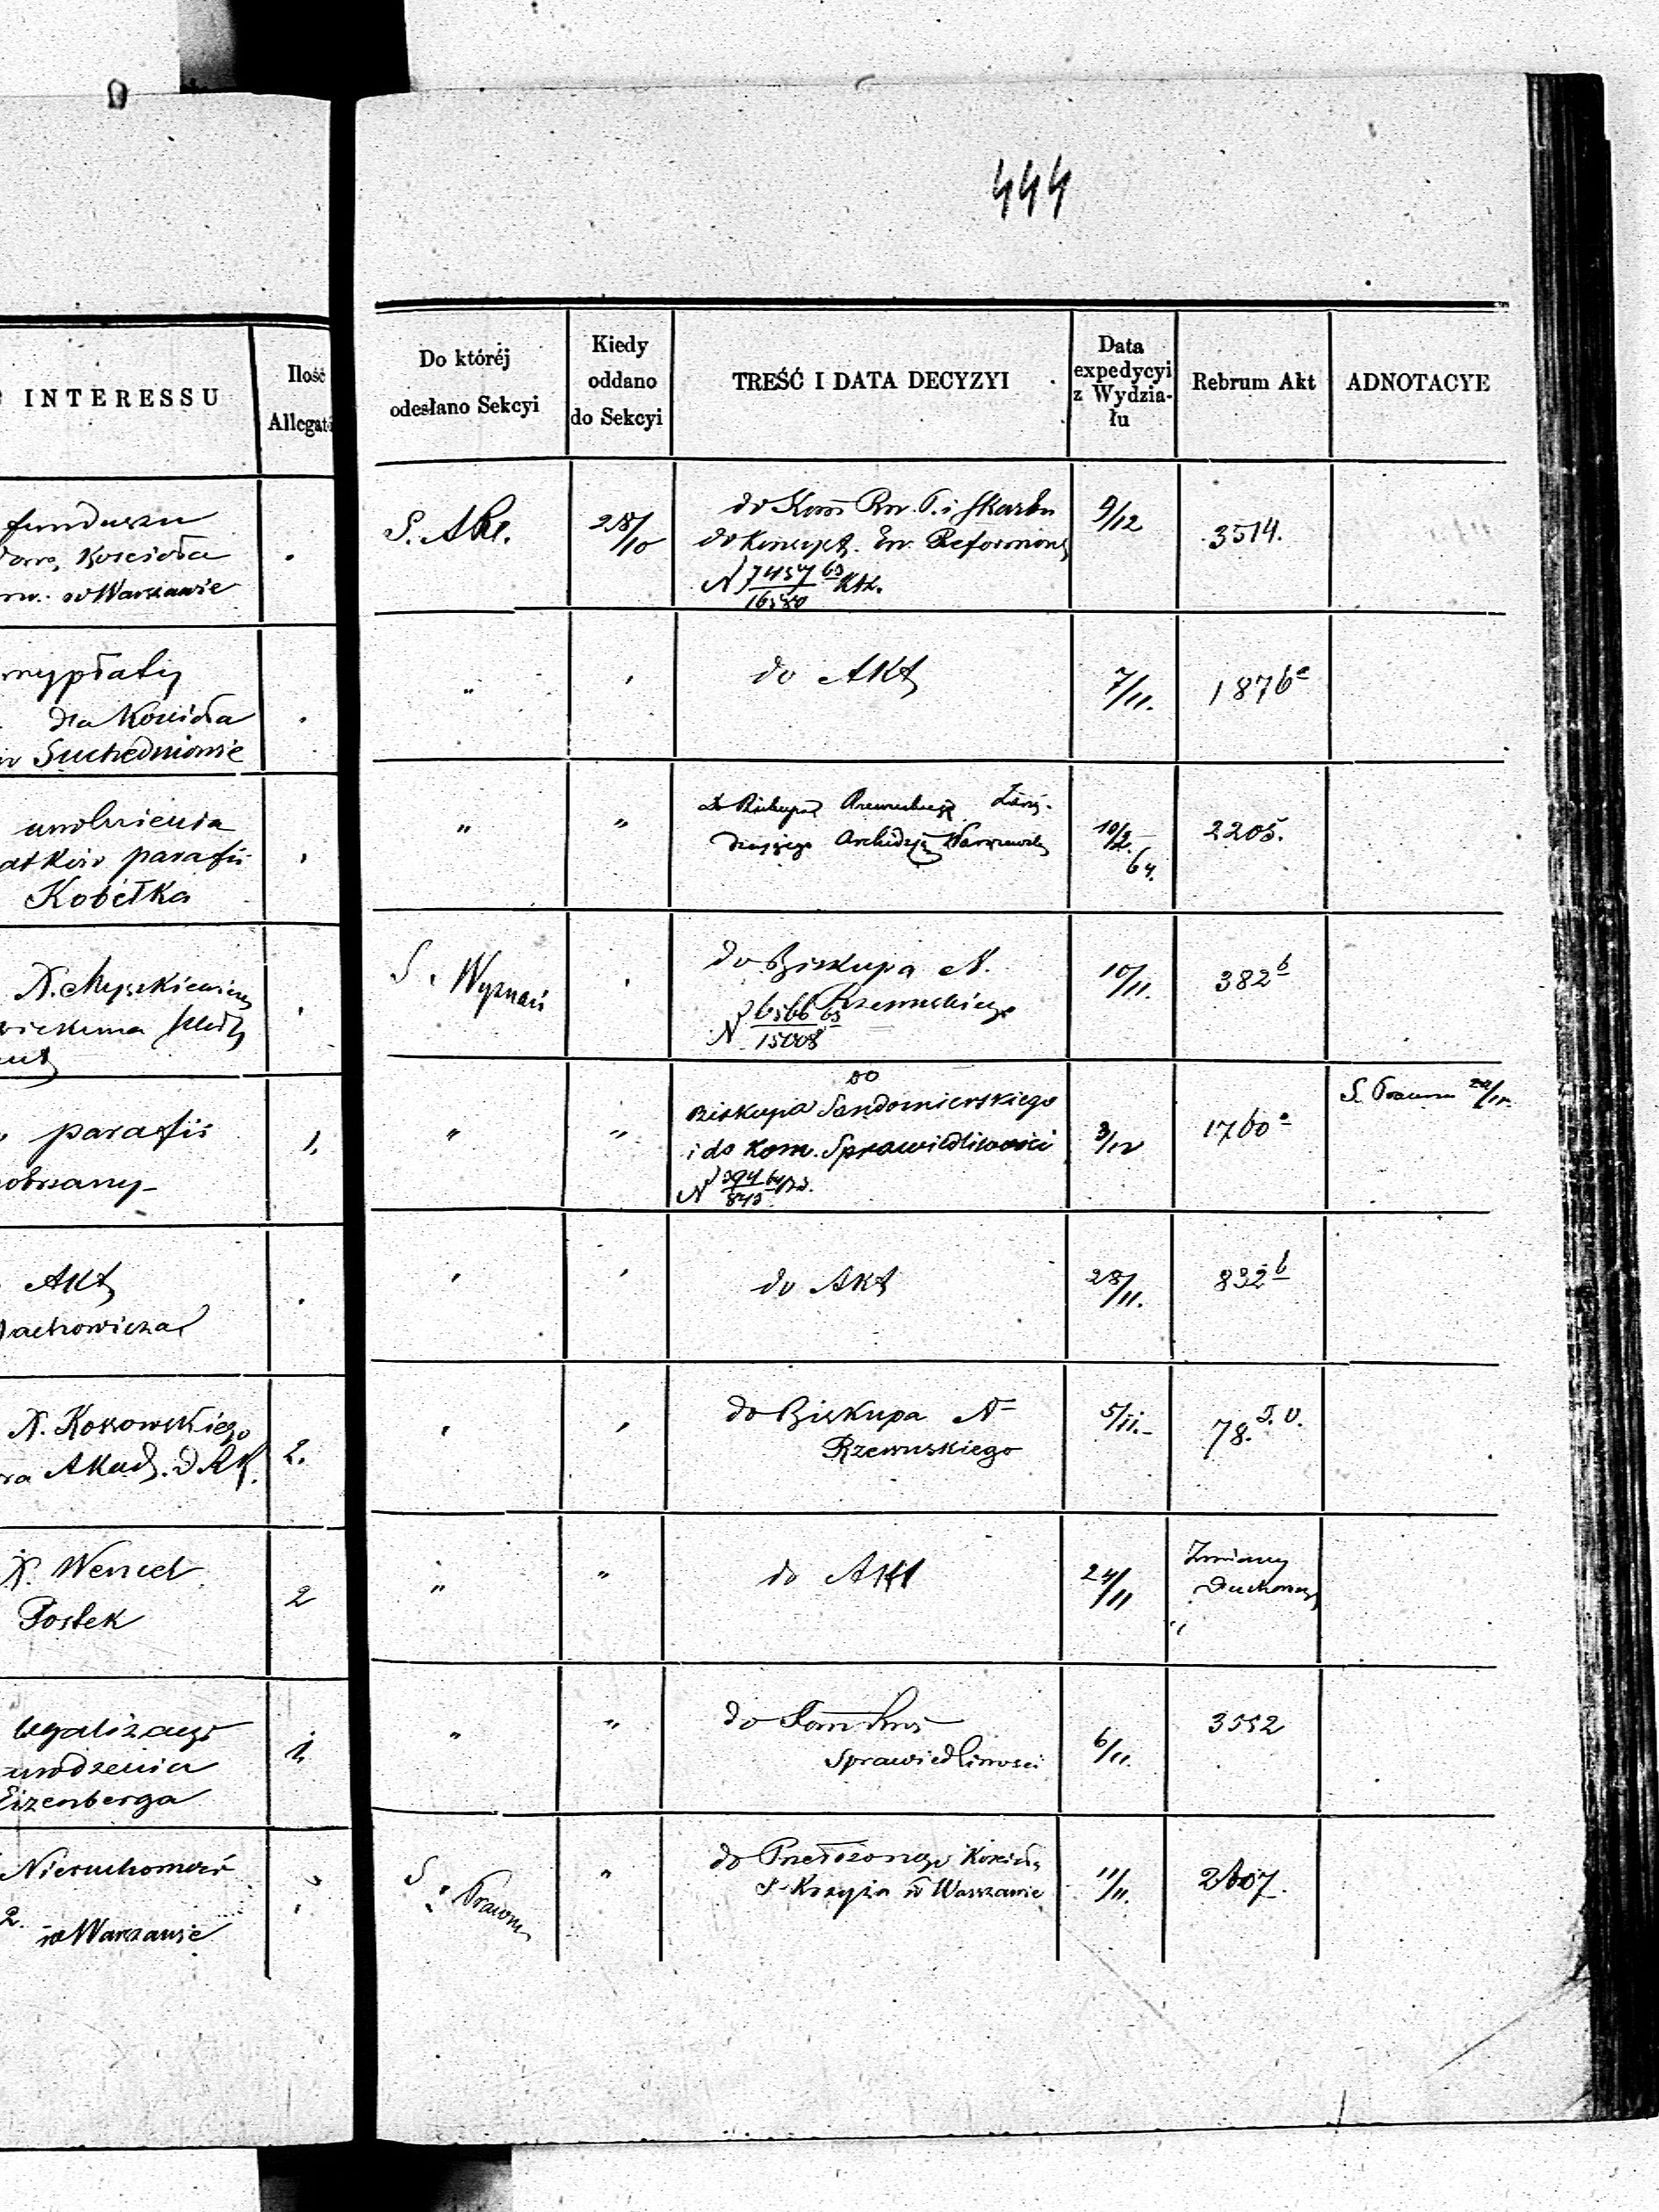 444
INTERESSU
Ilość
Allegat
Do któréj
odesłano Sekcyi
Kiedy
oddano
do Sekcyi
TREŚĆ I DATA DECYZYI
Data
expedycyi
z Wydzia-
łu
Rebrum Akt
ADNOTACYE
funduszu
Kościoła
w Warszawie
.
28/10
do Kom Rz. P. i Skarbu
do Konsyst. Ew. Reformow
N 7457 63
16580
9/12
3514.
wypłaty
dla Kościoła
w Suchedniowie
.
"
'
do Akt
7/11.
1876 a
uwolnienia
parafii
Kobełka
"
"
do Biskupa Rzewuskiego Zarzą-
dzającego Archidyą Warszawsk
10/2.
64.
2205.
.
S. Wyznań
do Biskupa N.
Rzewuskiego
N 6566 63
15008
10/11.
382 b
parafii
1.
"
"
do
Biskupa Sandomierskiego
i do Kom. Sprawiedliwości
N 394 64
843
3/12
1760 a
Akt
.
'
'
do Akt
28/11.
832 b
X. Kossowskiego
Akad. D.
2.
'
'
do Biskupa N
Rzewuskiego
5/11.
78.
X. Wencel
Postek
2
"
"
do Akt
24/11
Zmiany
Duchown
urodzenia
Eizenberga
1.
"
"
do Kom Rzą
Sprawiedliwości
6/11.
3552
Nieruchomości
2.
w Warszawie
S. Prawn
"
do Przełożonego Kościoła
S. Krzyża w Warszawie
11/11.
2607.